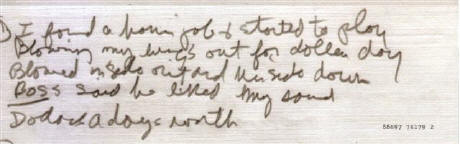 ) I found a horn job & started to play
Blowing my lungs out for dollar day
Blowed inside out and Upside down
BOSS said he liked my sound
Dollar a days worth
88697 76179 2